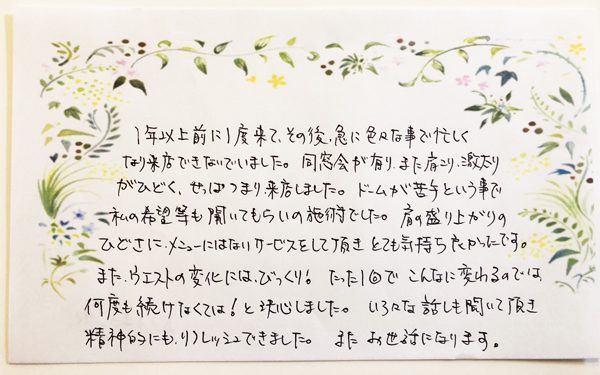 1年以上前に1度来て、その後、急に色々な事で忙しく
なり来店できないでいました。同窓会が有り、また肩こり、激太り
がひどく、せっぱつまり来店しました。ドームが苦手という事で
私の希望等も聞いてもらいの施術でした。肩の盛り上がりの
ひどさに、メニューにはないサービスをして頂きとても気持ち良かったです。
また、ウエストの変化には、びっくり! たった1回でこんなに変わるのでは、
何度も続けなくては!と決心しました。いろんな話しも聞いて頂き
精神的にも、リフレッシュできました。またお世話になります。